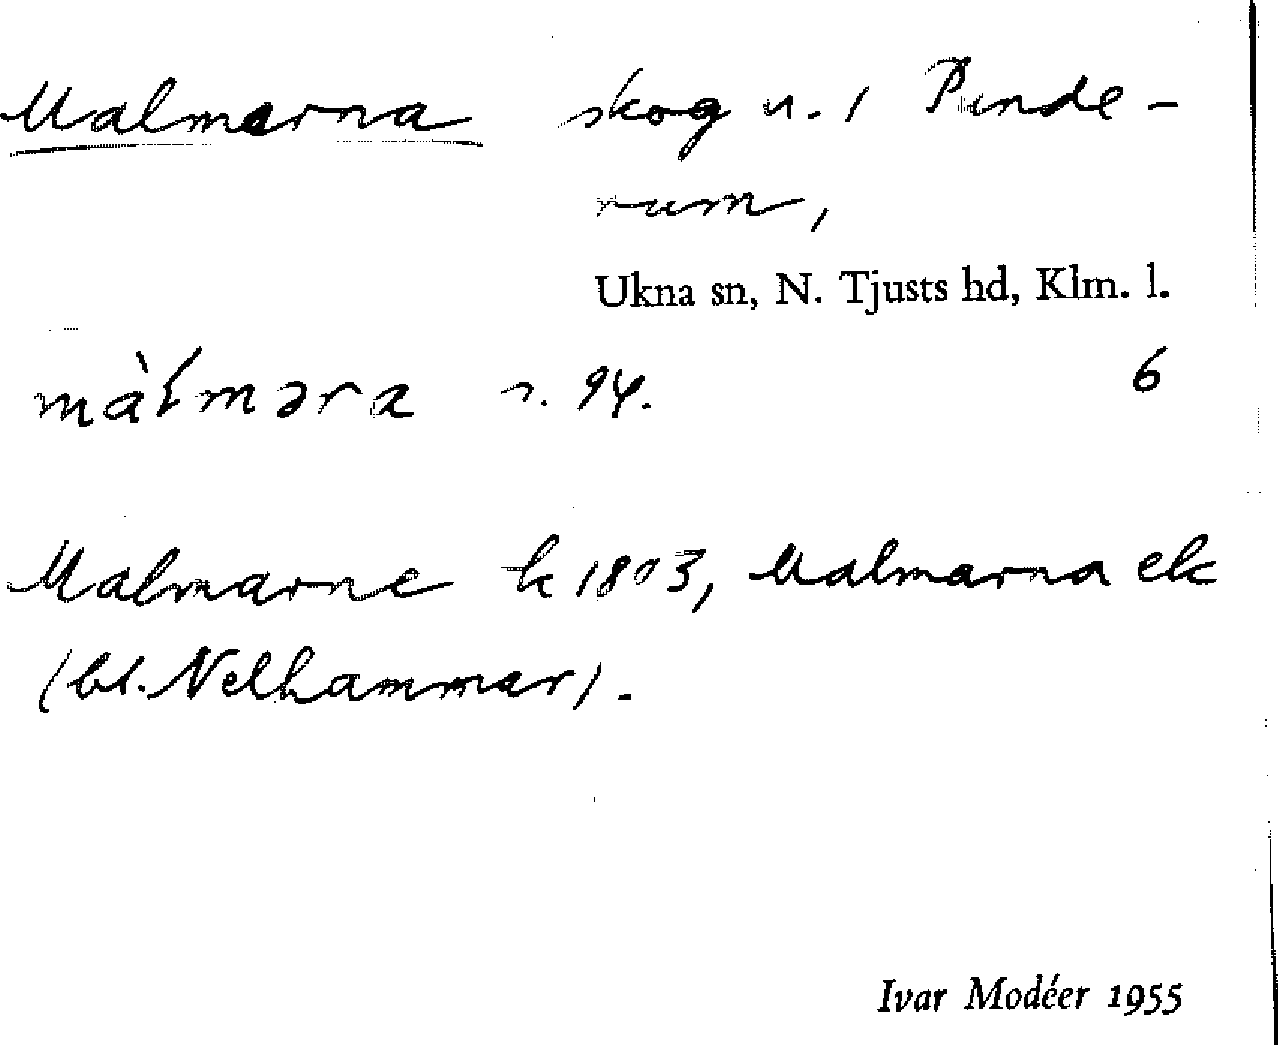 Malmarna skog u. / Punde-
rum,
Ukna sn, N. Tjusts hd, Klm. l.
màłməra s. 94. 6
Malmarne k 1803, Malmarna ek
(bl. Nelhammar).
Ivar Modéer 1955